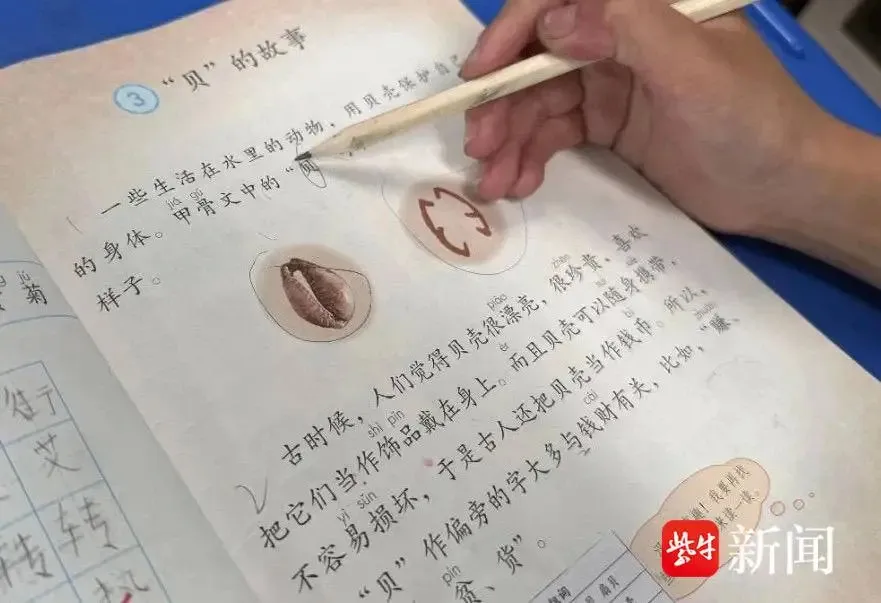 3 “贝”的故事
一些生活在水里的动物，用贝壳保护自己
jiǎ gǔ
的身体。甲骨文中的“贝
样子。
piào zhēn
古时候，人们觉得贝壳很漂亮，很珍贵，喜欢
shì pǐn ér
把它们当作饰品戴在身上。而且贝壳可以随身携带，
yì sǔn bì
不容易损坏，于是古人还把贝壳当作钱币。所以，
cái zhuàn
“贝”作偏旁的字大多与钱财有关，比如，“赚、
pín
贫、货”。
趣！我要再找
来读一读。
菊
街
艾
转 转
紫牛新闻